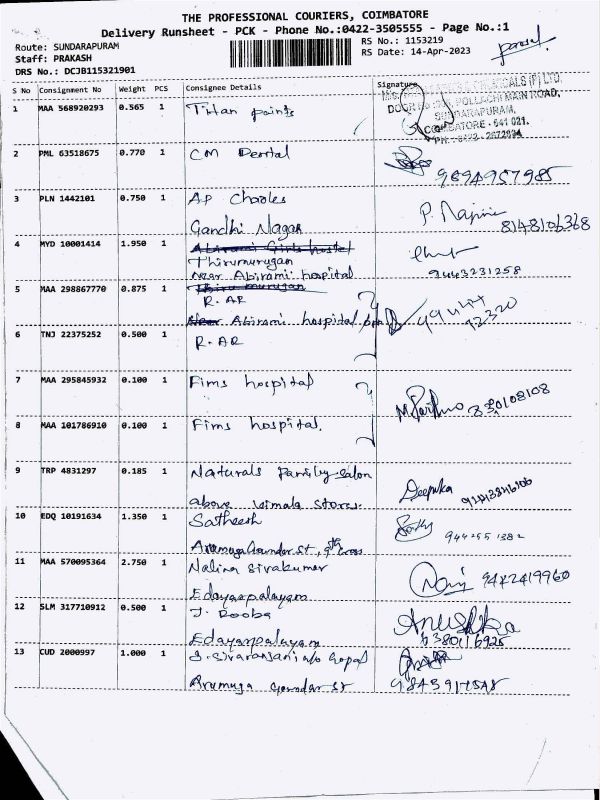 THE PROFESSIONAL COURIERS, COIMBATORE
Delivery Runsheet - PCK - Phone No.:0422-3505555 - Page No.:1
Route: SUNDARAPURAM
RS No.: 1153219
Staff: PRAKASH
RS Date: 14-Apr-2023
DRS No.: DCJB115321901
S No Consignment No Weight PCS Consignee Details Signature
1 MAA 568920293 0.565 1 Titan paints
POLLACHI MAIN ROAD,
SUNDARAPURAM,
COIMBATORE - 641 021.
2 PML 63518675 0.770 1 CM Dental
9894957985
3 PLN 1442101 0.750 1 AP Charles
Gandhi Nagar
8148106368
4 MYD 10001414 1.950 1 Abirami Girls hostel
Thirumurugan
Near Abirami hospital
9443231258
5 MAA 298867770 0.875 1 Thirumurugan
R. AR
Near Abirami hospital
6 TNJ 22375252 0.500 1 R. AR
7 MAA 295845932 0.100 1 Fims hospital
8 MAA 101786910 0.100 1 Fims hospital.
9 TRP 4831297 0.185 1 Naturals family salon
above vimala stores.
Deepika
10 EDQ 10191634 1.350 1 Satheesh
Arumuga Gounder st, 9th cross
11 MAA 570095364 2.750 1 Nalina sivakumar
Edayarpalayam
9442419960
12 SLM 317710912 0.500 1 J. Rooba
Edayarpalayam
Anushka
6380116925
13 CUD 2000997 1.000 1 J. Sivaranjani w/o Gopal
Arumuga Gounder st